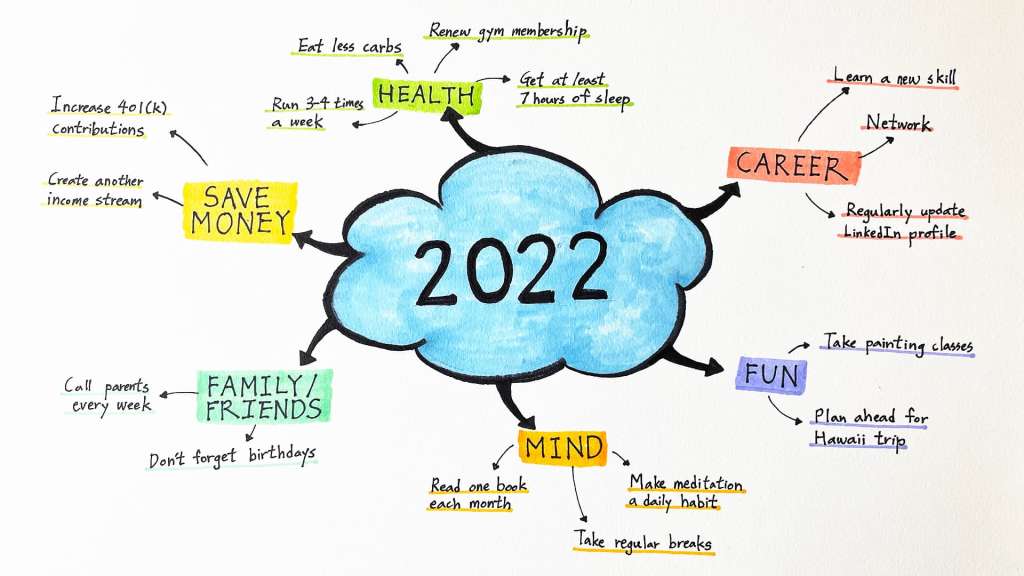 2022
HEALTH
Eat less carbs
Renew gym membership
Run 3-4 times
a week
Get at least
7 hours of sleep
CAREER
Learn a new skill
Network
Regularly update
LinkedIn profile
FUN
Take painting classes
Plan ahead for
Hawaii trip
MIND
Read one book
each month
Take regular breaks
Make meditation
a daily habit
FAMILY/
FRIENDS
Call parents
every week
Don't forget birthdays
SAVE
MONEY
Increase 401(k)
contributions
Create another
income stream